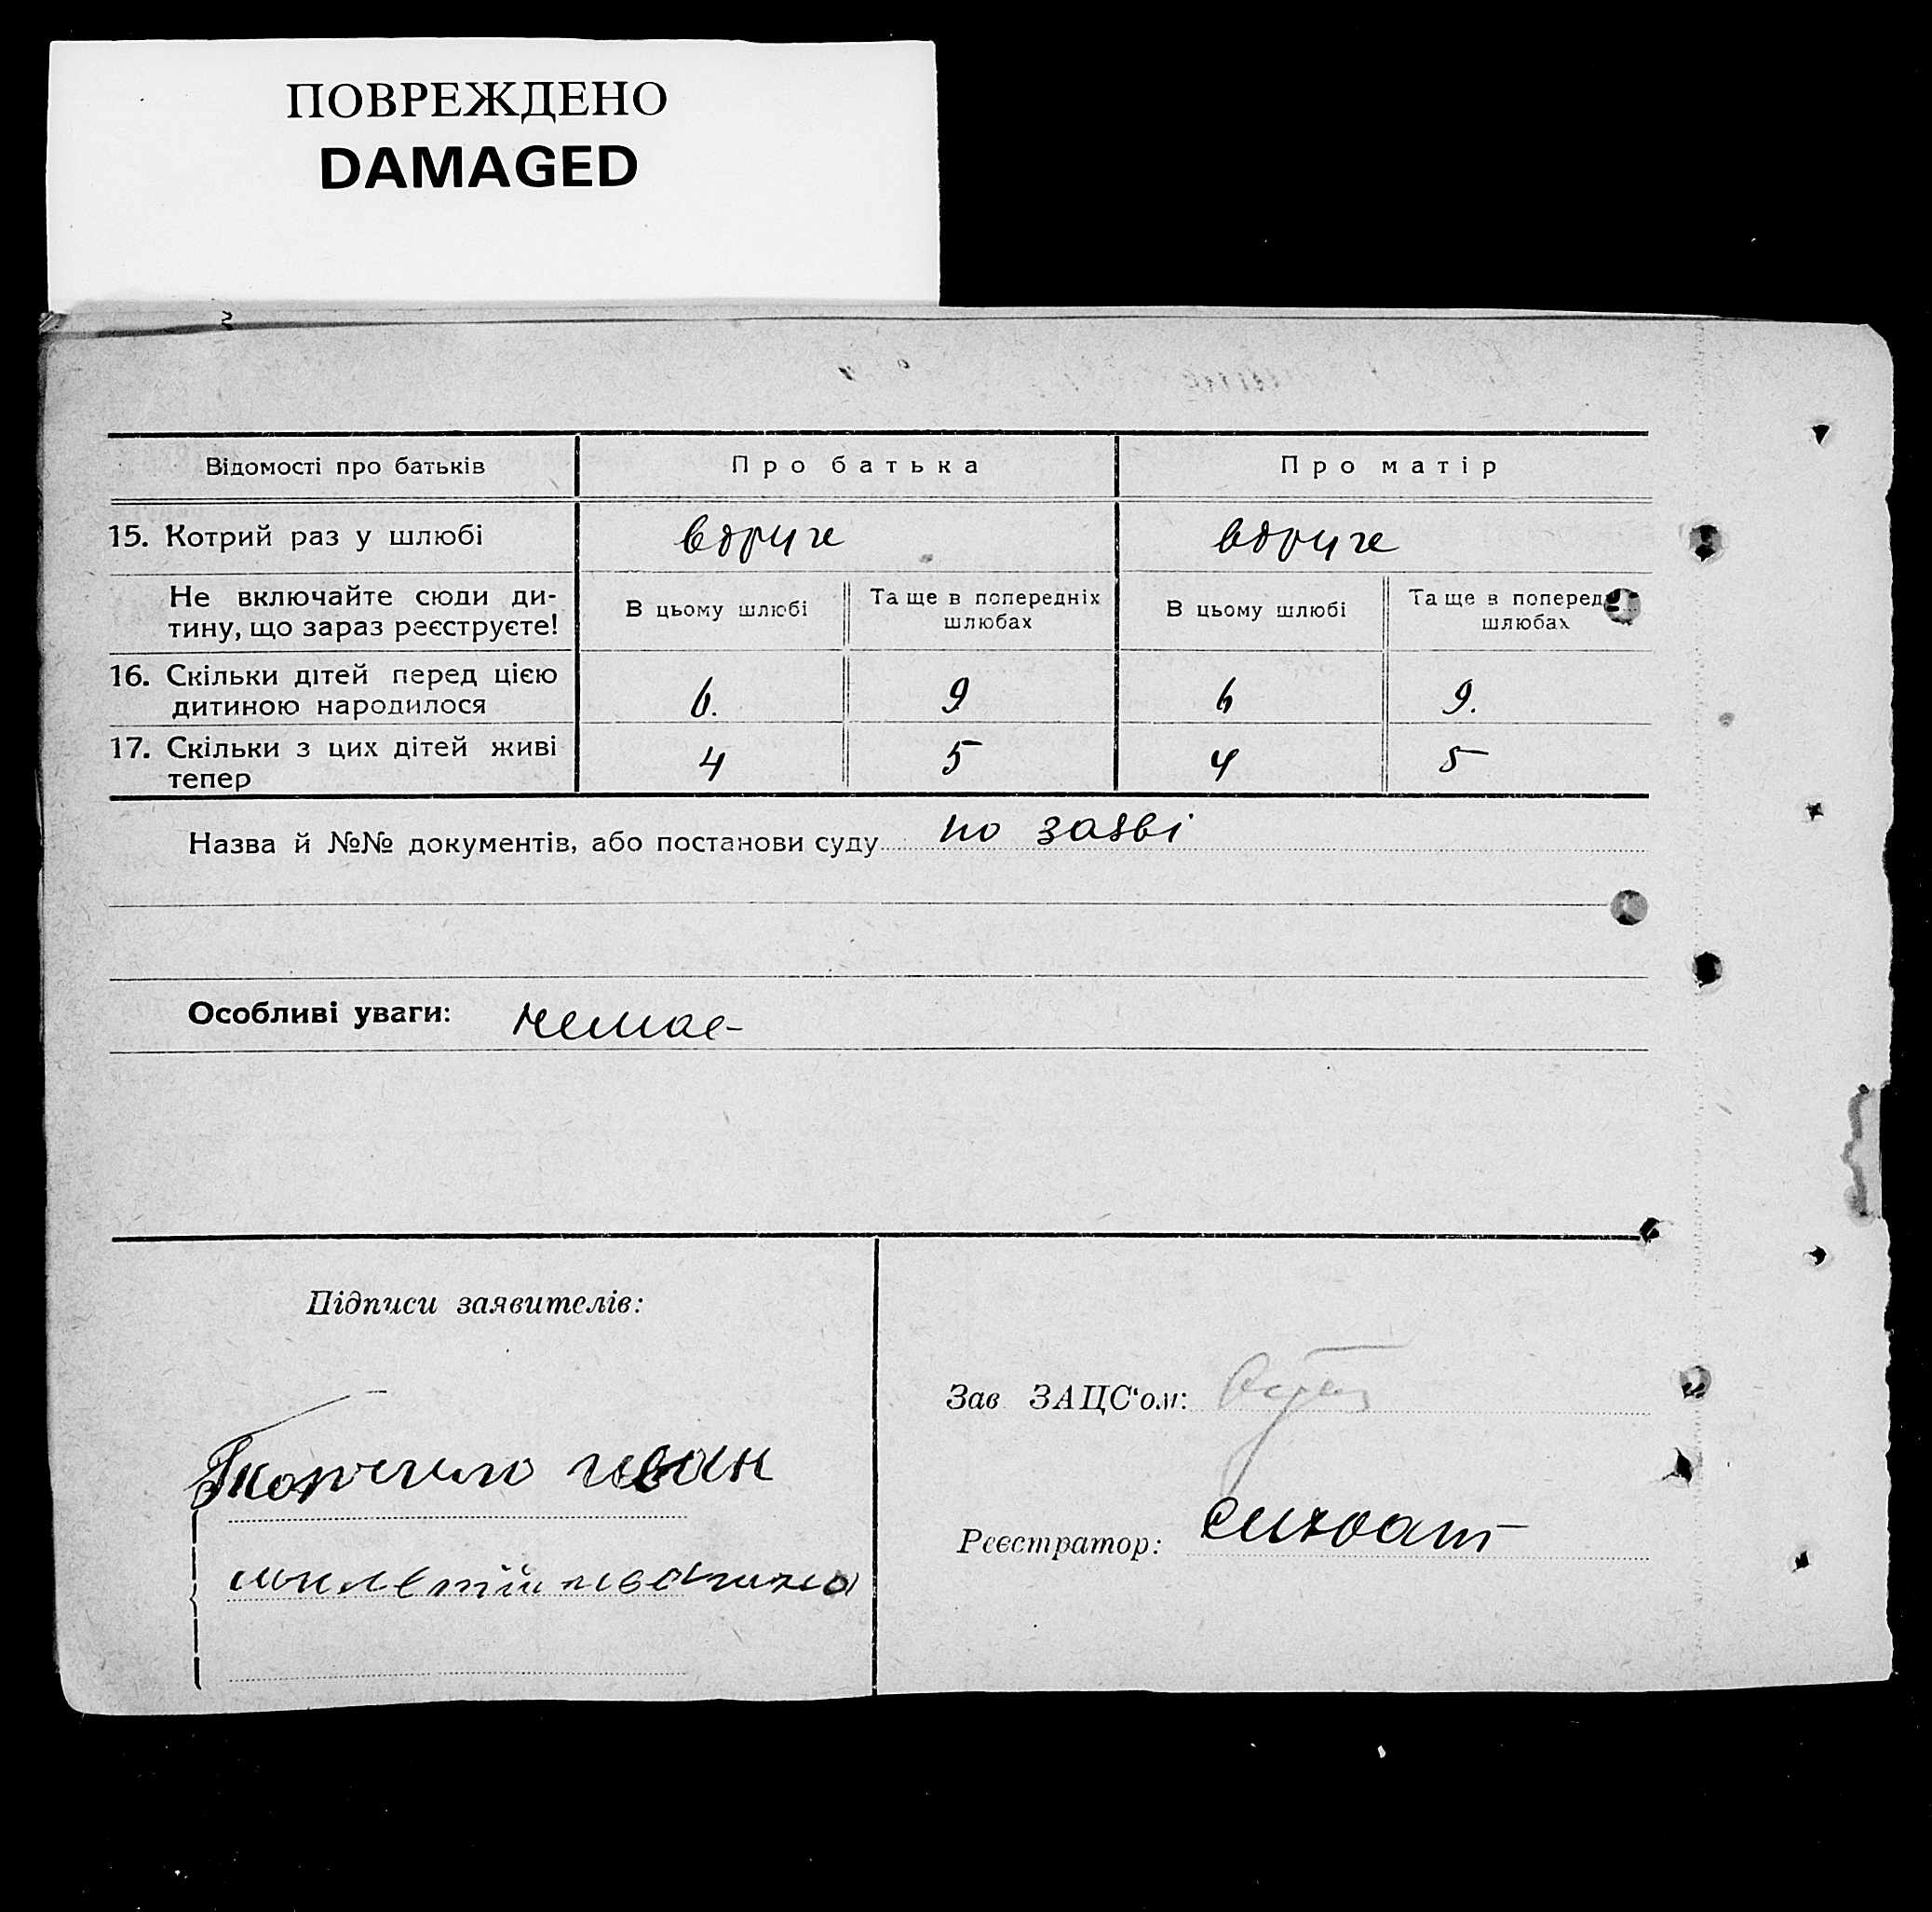 ПОВРЕЖДЕНО
DAMAGED
Відомості про батьків Про батька Про матір
15. Котрий раз у шлюбі вдруге вдруге
Не включайте сюди ди-
тину, що зараз реєструєте!
В цьому шлюбі Та ще в попередніх
шлюбах
В цьому шлюбі Та ще в поперед
шлюбах
16. Скільки дітей перед цією
дитиною народилося 6. 9 6 9.
17. Скільки з цих дітей живі
тепер 4 5 4 5
Назва й №№ документів, або постанови суду по заяві
Особливі уваги: немає
Підписи заявителів:
Зав ЗАЦС'ом:
иван
Реєстратор: